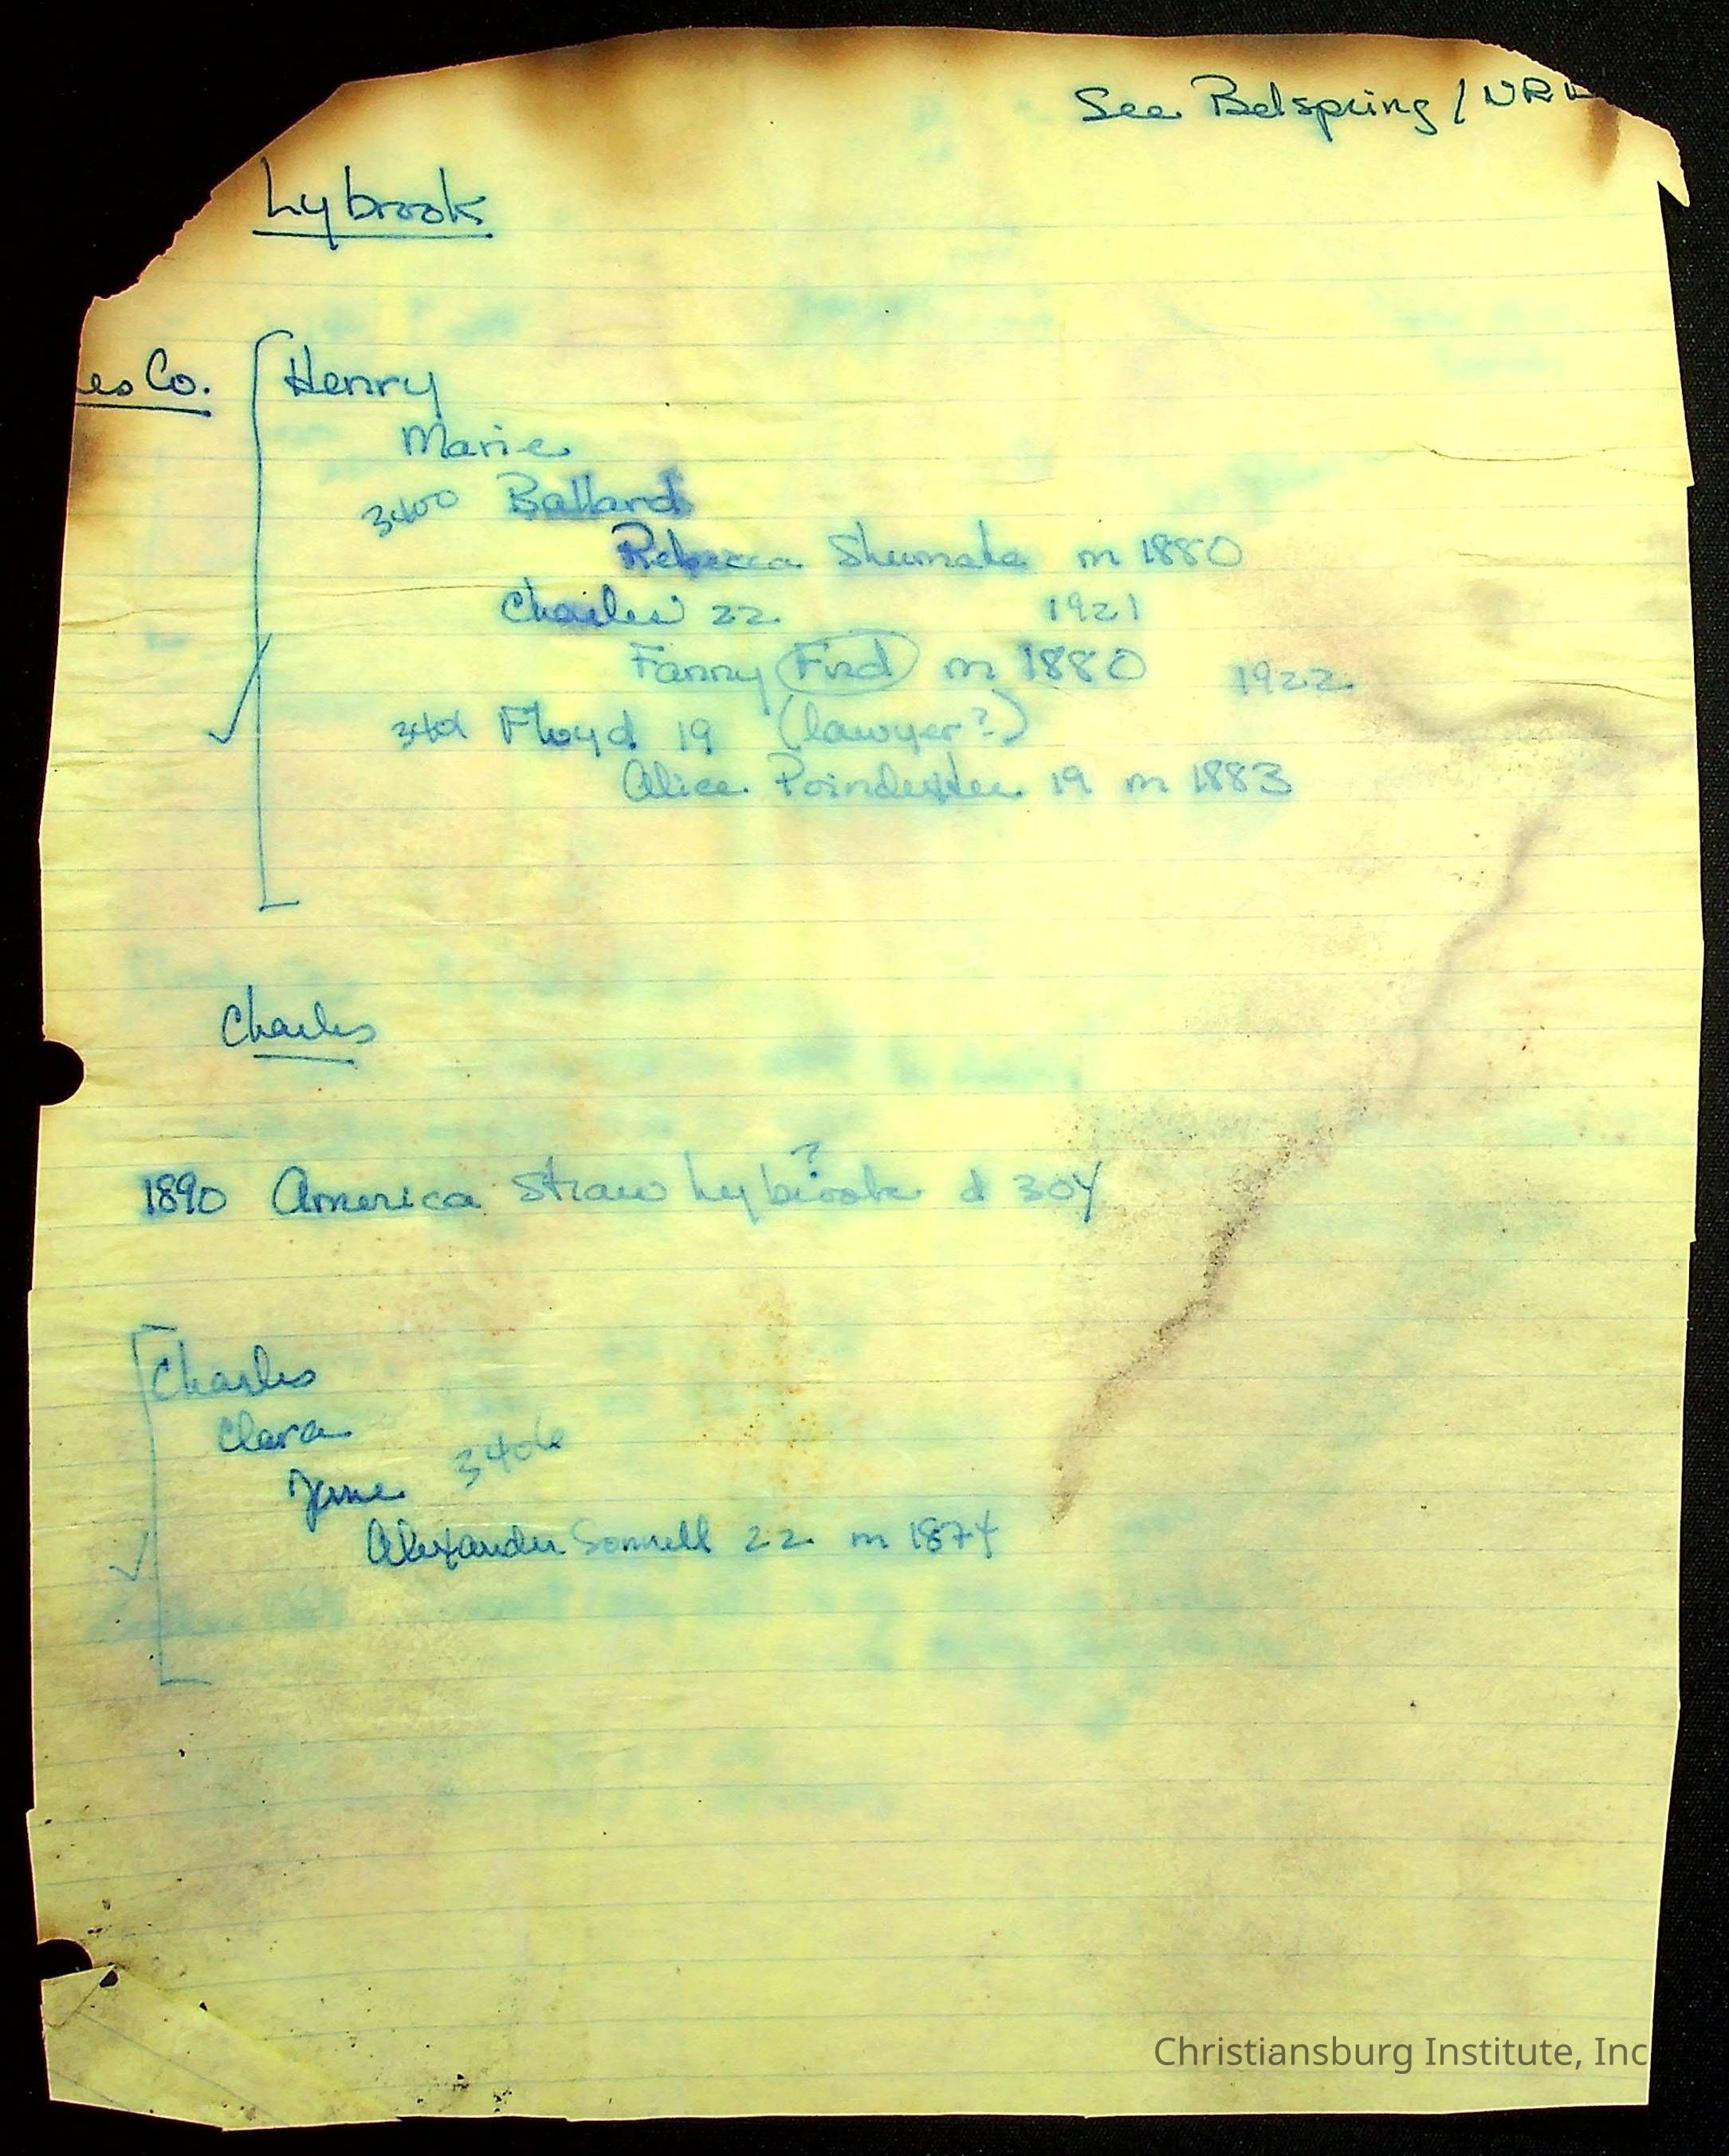 See Belspring / NRV
Lybrook
es Co. Henry
Marie
3400 Ballard
Rebecca Shumate m 1880
Charles 22 1921
Fanny Find m 1880 1922
3401 Floyd 19 (lawyer?)
Alice Poindexter 19 m 1883
Charles
?
1890 America Straw Lybrook d 304
Charles
Clara
Jane 3406
Alexander 22 m 1874
Christiansburg Institute, Inc